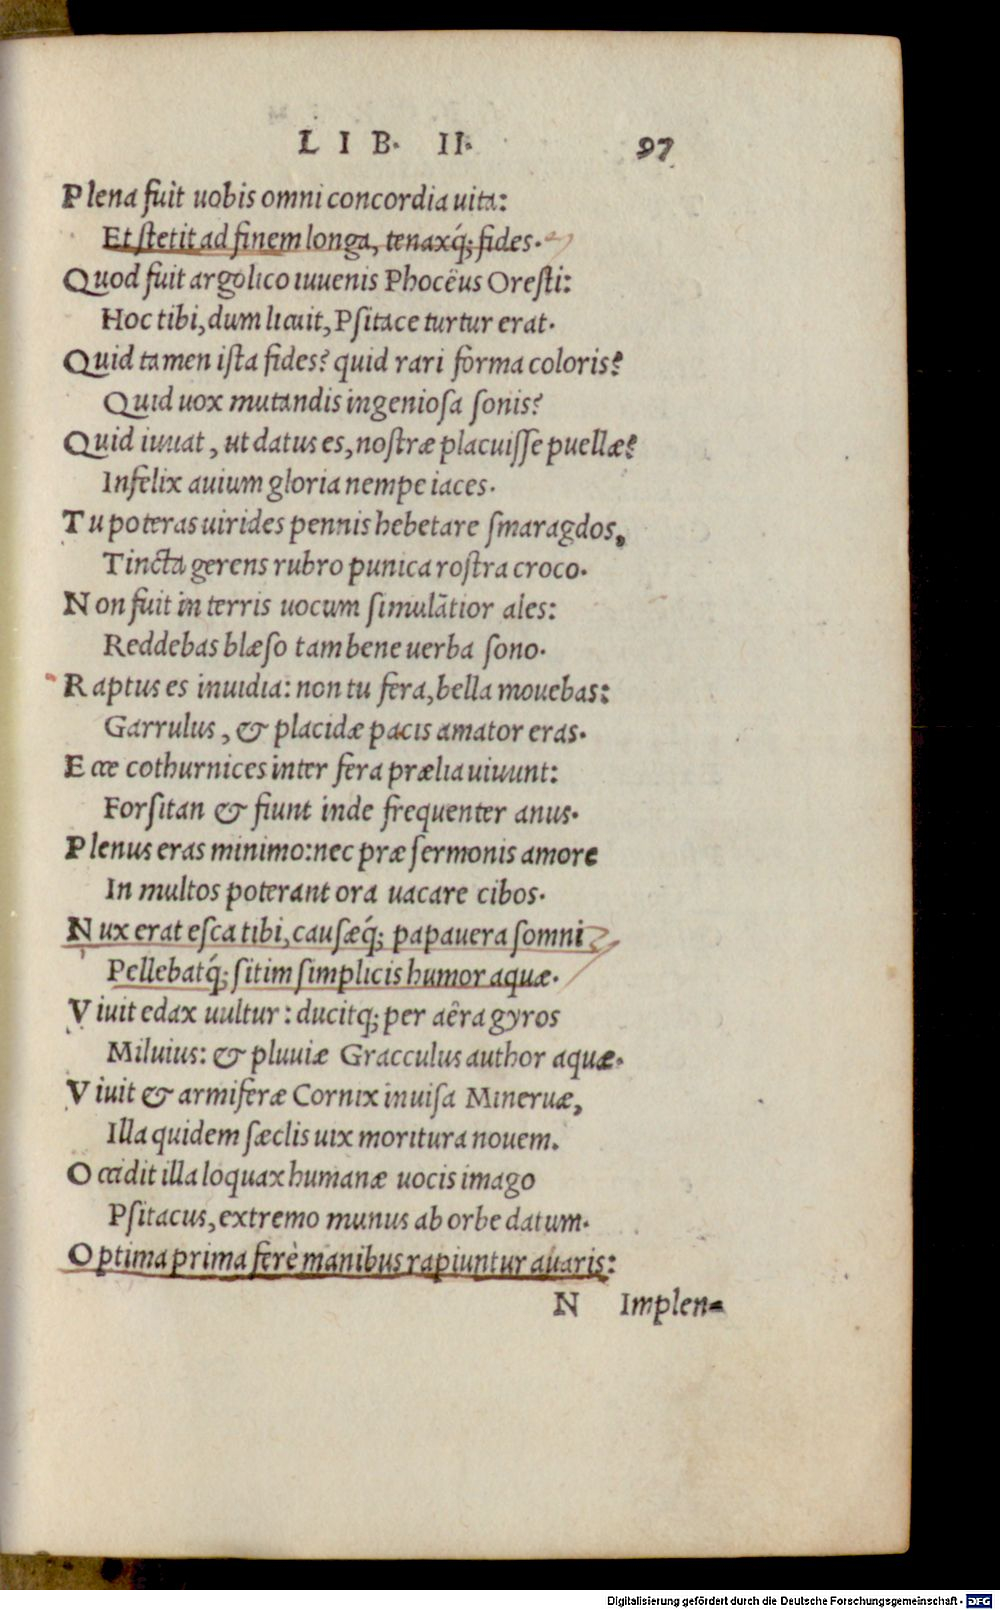 LIB. II. 97
Plena fuit uobis omni concordia uita:
Et stetit ad finem longa, tenaxq́; fides.
Quod fuit argolico iuuenis Phocëus Oresti:
Hoc tibi, dum licuit, Psitace turtur erat.
Quid tamen ista fides? quid rari forma coloris?
Quid uox mutandis ingeniosa sonis?
Quid iuuat, ut datus es, nostræ placuisse puellæ?
Infelix auium gloria nempe iaces.
Tu poteras uirides pennis hebetare smaragdos,
Tincta gerens rubro punica rostra croco.
Non fuit in terris uocum simulãtior ales:
Reddebas blæso tam bene uerba sono.
Raptus es inuidia: non tu fera, bella mouebas:
Garrulus, & placidæ pacis amator eras.
Ecce cothurnices inter fera prælia uiuunt:
Forsitan & fiunt inde frequenter anus.
Plenus eras minimo: nec præ sermonis amore
In multos poterant ora uacare cibos.
Nux erat esca tibi, causæq́; papauera somni
Pellebatq́; sitim simplicis humor aquæ.
Viuit edax uultur: ducitq; per aëra gyros
Miluius: & pluuiæ Gracculus author aquæ.
Viuit & armiferæ Cornix inuisa Mineruæ,
Illa quidem sæclis uix moritura nouem.
Occidit illa loquax humanæ uocis imago
Psitacus, extremo munus ab orbe datum.
Optima prima ferè manibus rapiuntur auaris:
N Implen=
Digitalisierung gefördert durch die Deutsche Forschungsgemeinschaft - DFG